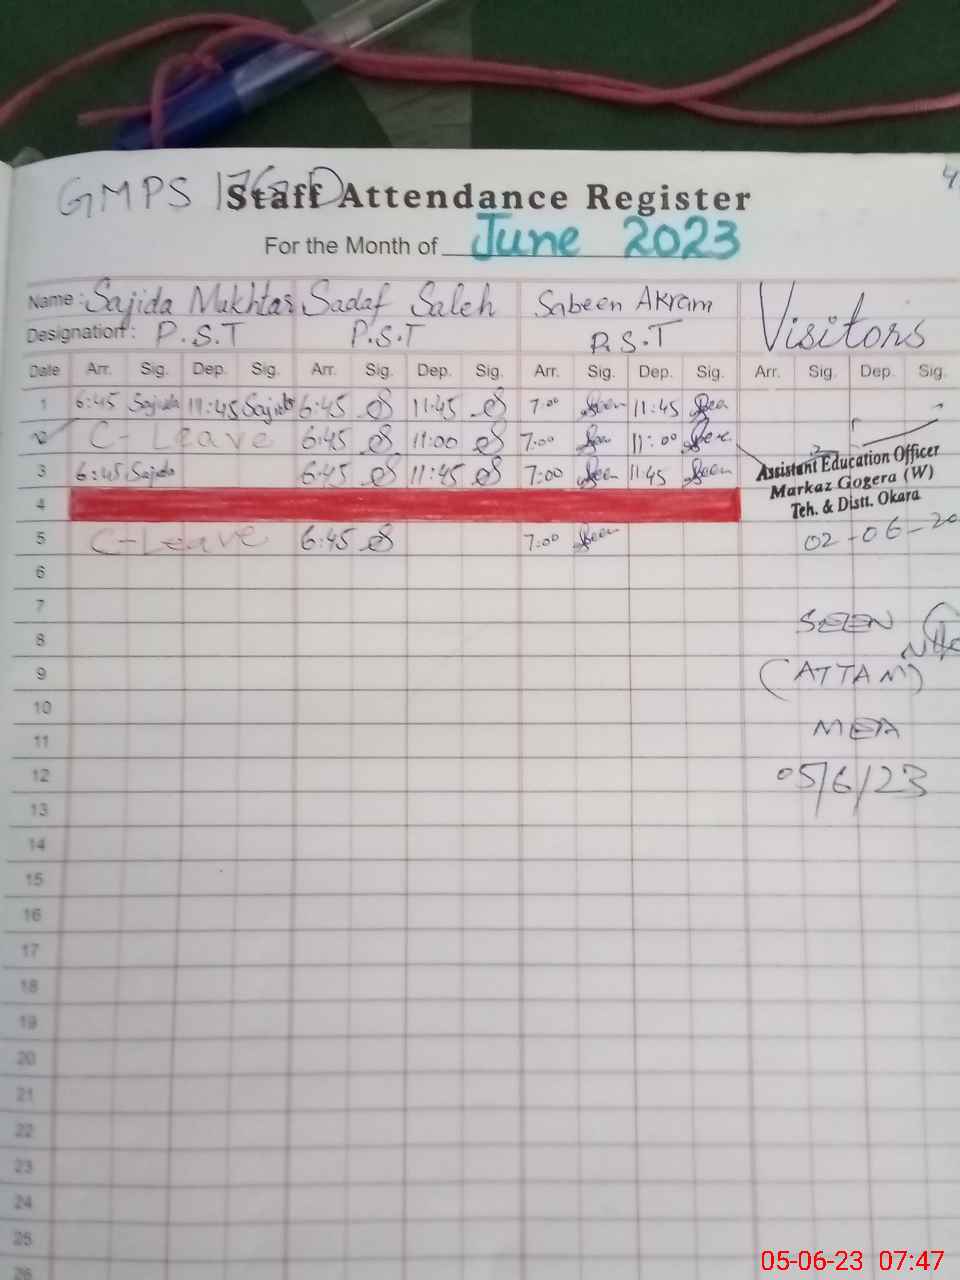 GMPS
Staff Attendance Register
For the Month of June 2023
Name: Sajida Mukhtar Sadaf Saleh Sabeen Akram Visitors
Designation: P.S.T P.S.T P.S.T
Date Arr. Sig. Dep. Sig. Arr. Sig. Dep. Sig. Arr. Sig. Dep. Sig. Arr. Sig. Dep. Sig.
1 6:45 Sajida 11:45 Sajida 6:45 11:45 7:00 11:45
2 C-Leave 6:45 11:00 7:00 11:00
3 6:45 Sajida 6:45 11:45 7:00 11:45
Assistant Education Officer
Markaz Gogera (W)
Teh. & Distt. Okara
4
5 C-Leave 6:45 7:00
02-06-20
6
7
SEEN
8
9
(ATTAM)
10
11
MEA
12
05/6/23
13
14
15
16
17
18
19
20
21
22
23
24
25
26
05-06-23 07:47